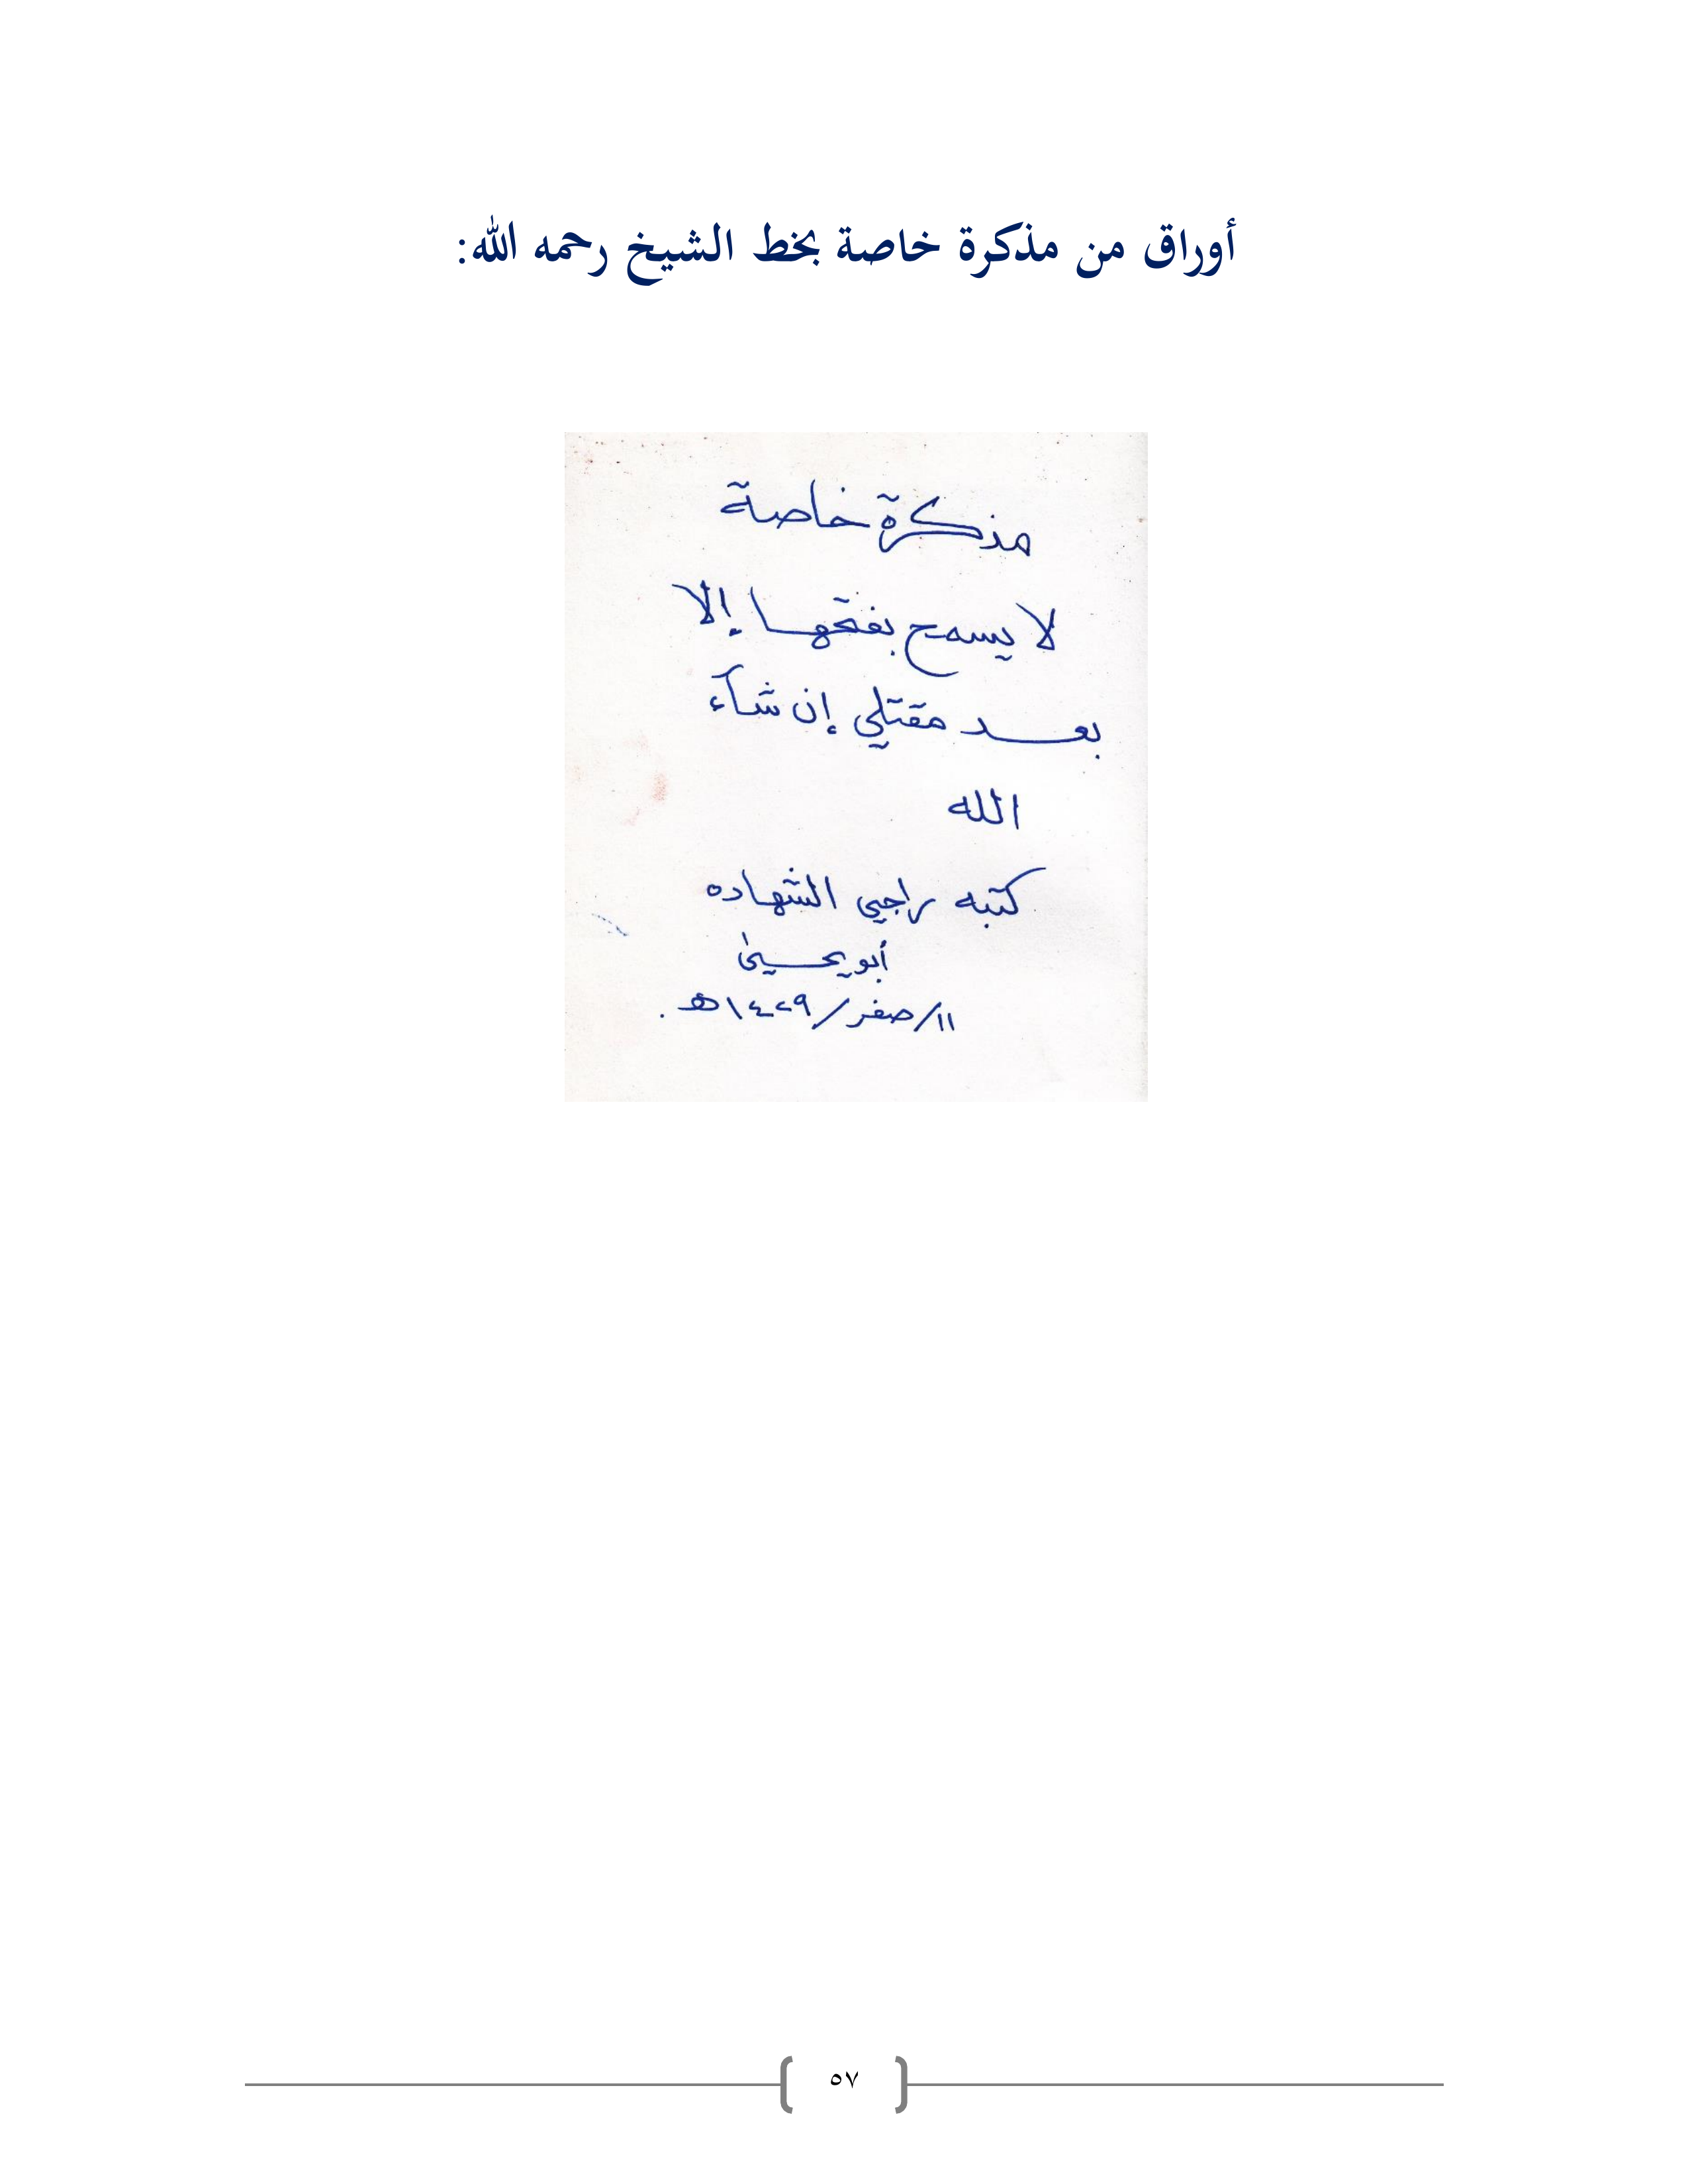 أوراق من مذكرة خاصة بخط الشيخ رحمه الله:
مذكرة خاصة
لا يسمح بفتحها إلا
بعد مقتلي إن شآء
الله
كتبه راجي الشهاده
أبو يحيى
١١/صفر/١٤٢٩هـ.
٥٧